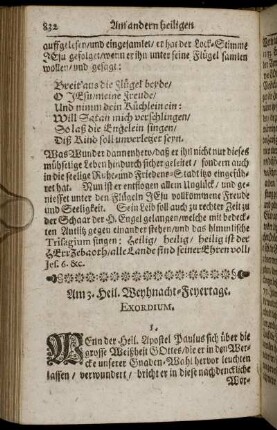 832 Am andern heiligen
auffgelesen/und eingesamlet/ er hat der Lock-Stimme
JEsu gefolget/wenn er ihn unter seine Flügel samlen
wollen/und gesagt:
Breit aus die Flügel beyde/
O JEsu meine Freude/
Und nimm dein Küchlein ein:
Will Satan mich verschlingen/
So laß die Engelein singen/
Diß Kind soll unverletzet seyn.
Was Wunder dannenhero/daß er ihn nicht nur dieses
mühselige Leben hindurch sicher geleitet / sondern auch
in die selige Ruhe-und Friedens-Stadt itzo eingefüh-
ret hat. Nun ist er entflogen allem Unglück/ und ge-
niesset unter den Flügeln JEsu vollkommene Freude
und Seeligkeit. Sein Leib soll auch zu rechter Zeit zu
der Schaar der H. Engel gelangen/welche mit bedeck-
ten Antlitz gegen einander stehen/und das himmlische
Trisagium singen: Heilig/ heilig/ heilig ist der
HErr Zebaoth/alle Lande sind seiner Ehren voll/
Jes. 6. &c.
Am 3. Heil. Weyhnacht-Feyertage.
EXORDIUM.
1.
WEnn der Heil. Apostel Paulus sich über die
grosse Weißheit GOttes/die er in den Wer-
cke unserer Gnaden-Wahl hervor leuchten
lassen / verwundert / bricht er in diese nachdenckliche
Wor-